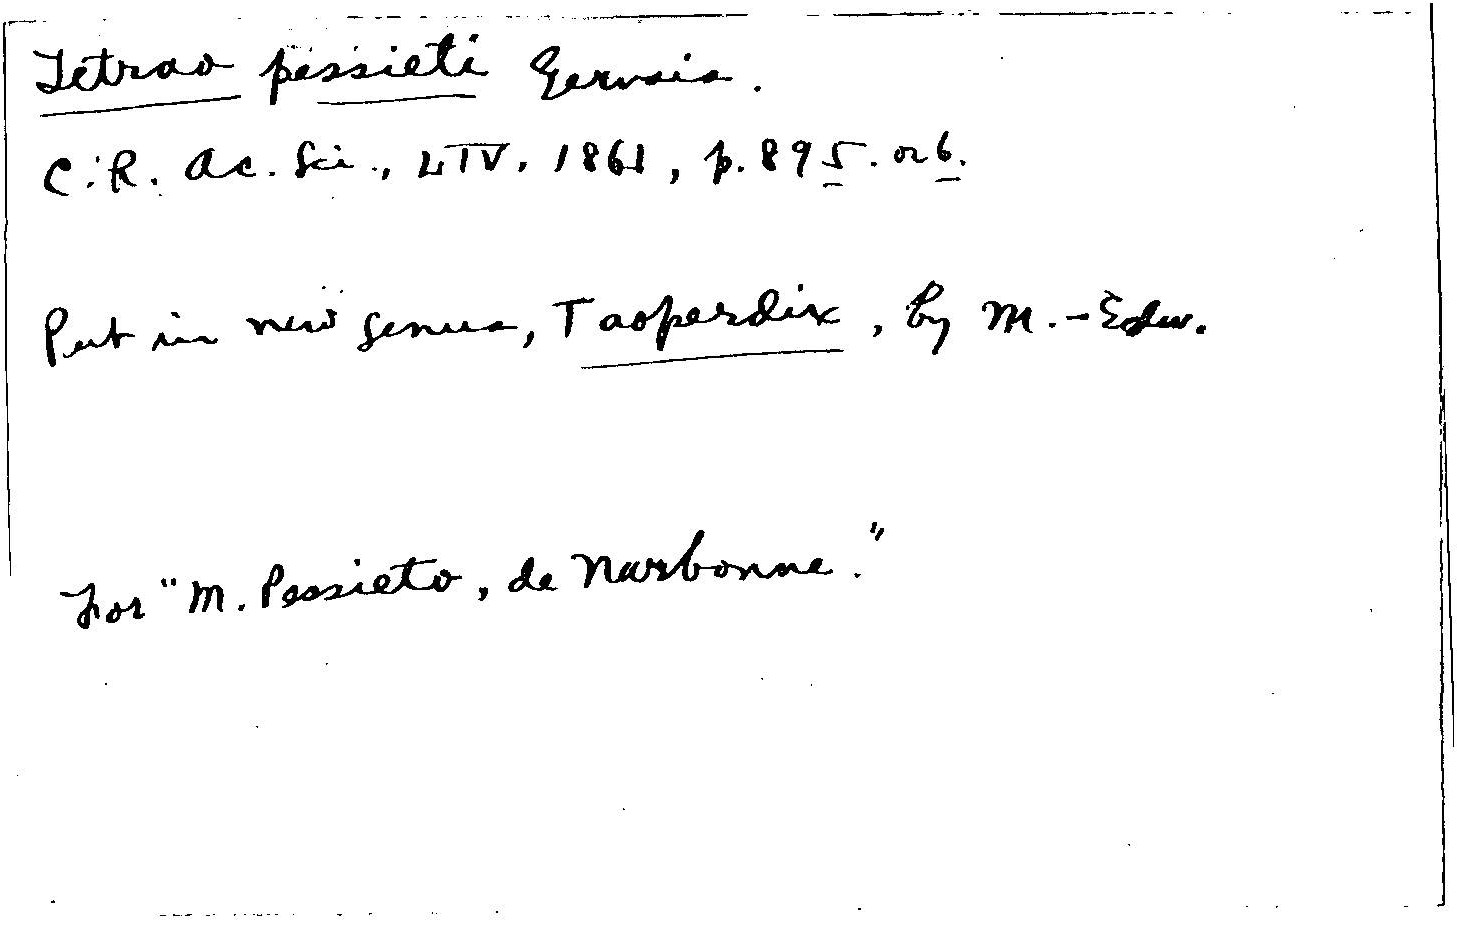 Tetrao pessieti Gervais.
C.R. Ac. Sci., LIV, 1861, p. 895. or 6.
Put in new genus, Taoperdix, by M.-Edw.
For "M. Pessieto, de Narbonne."